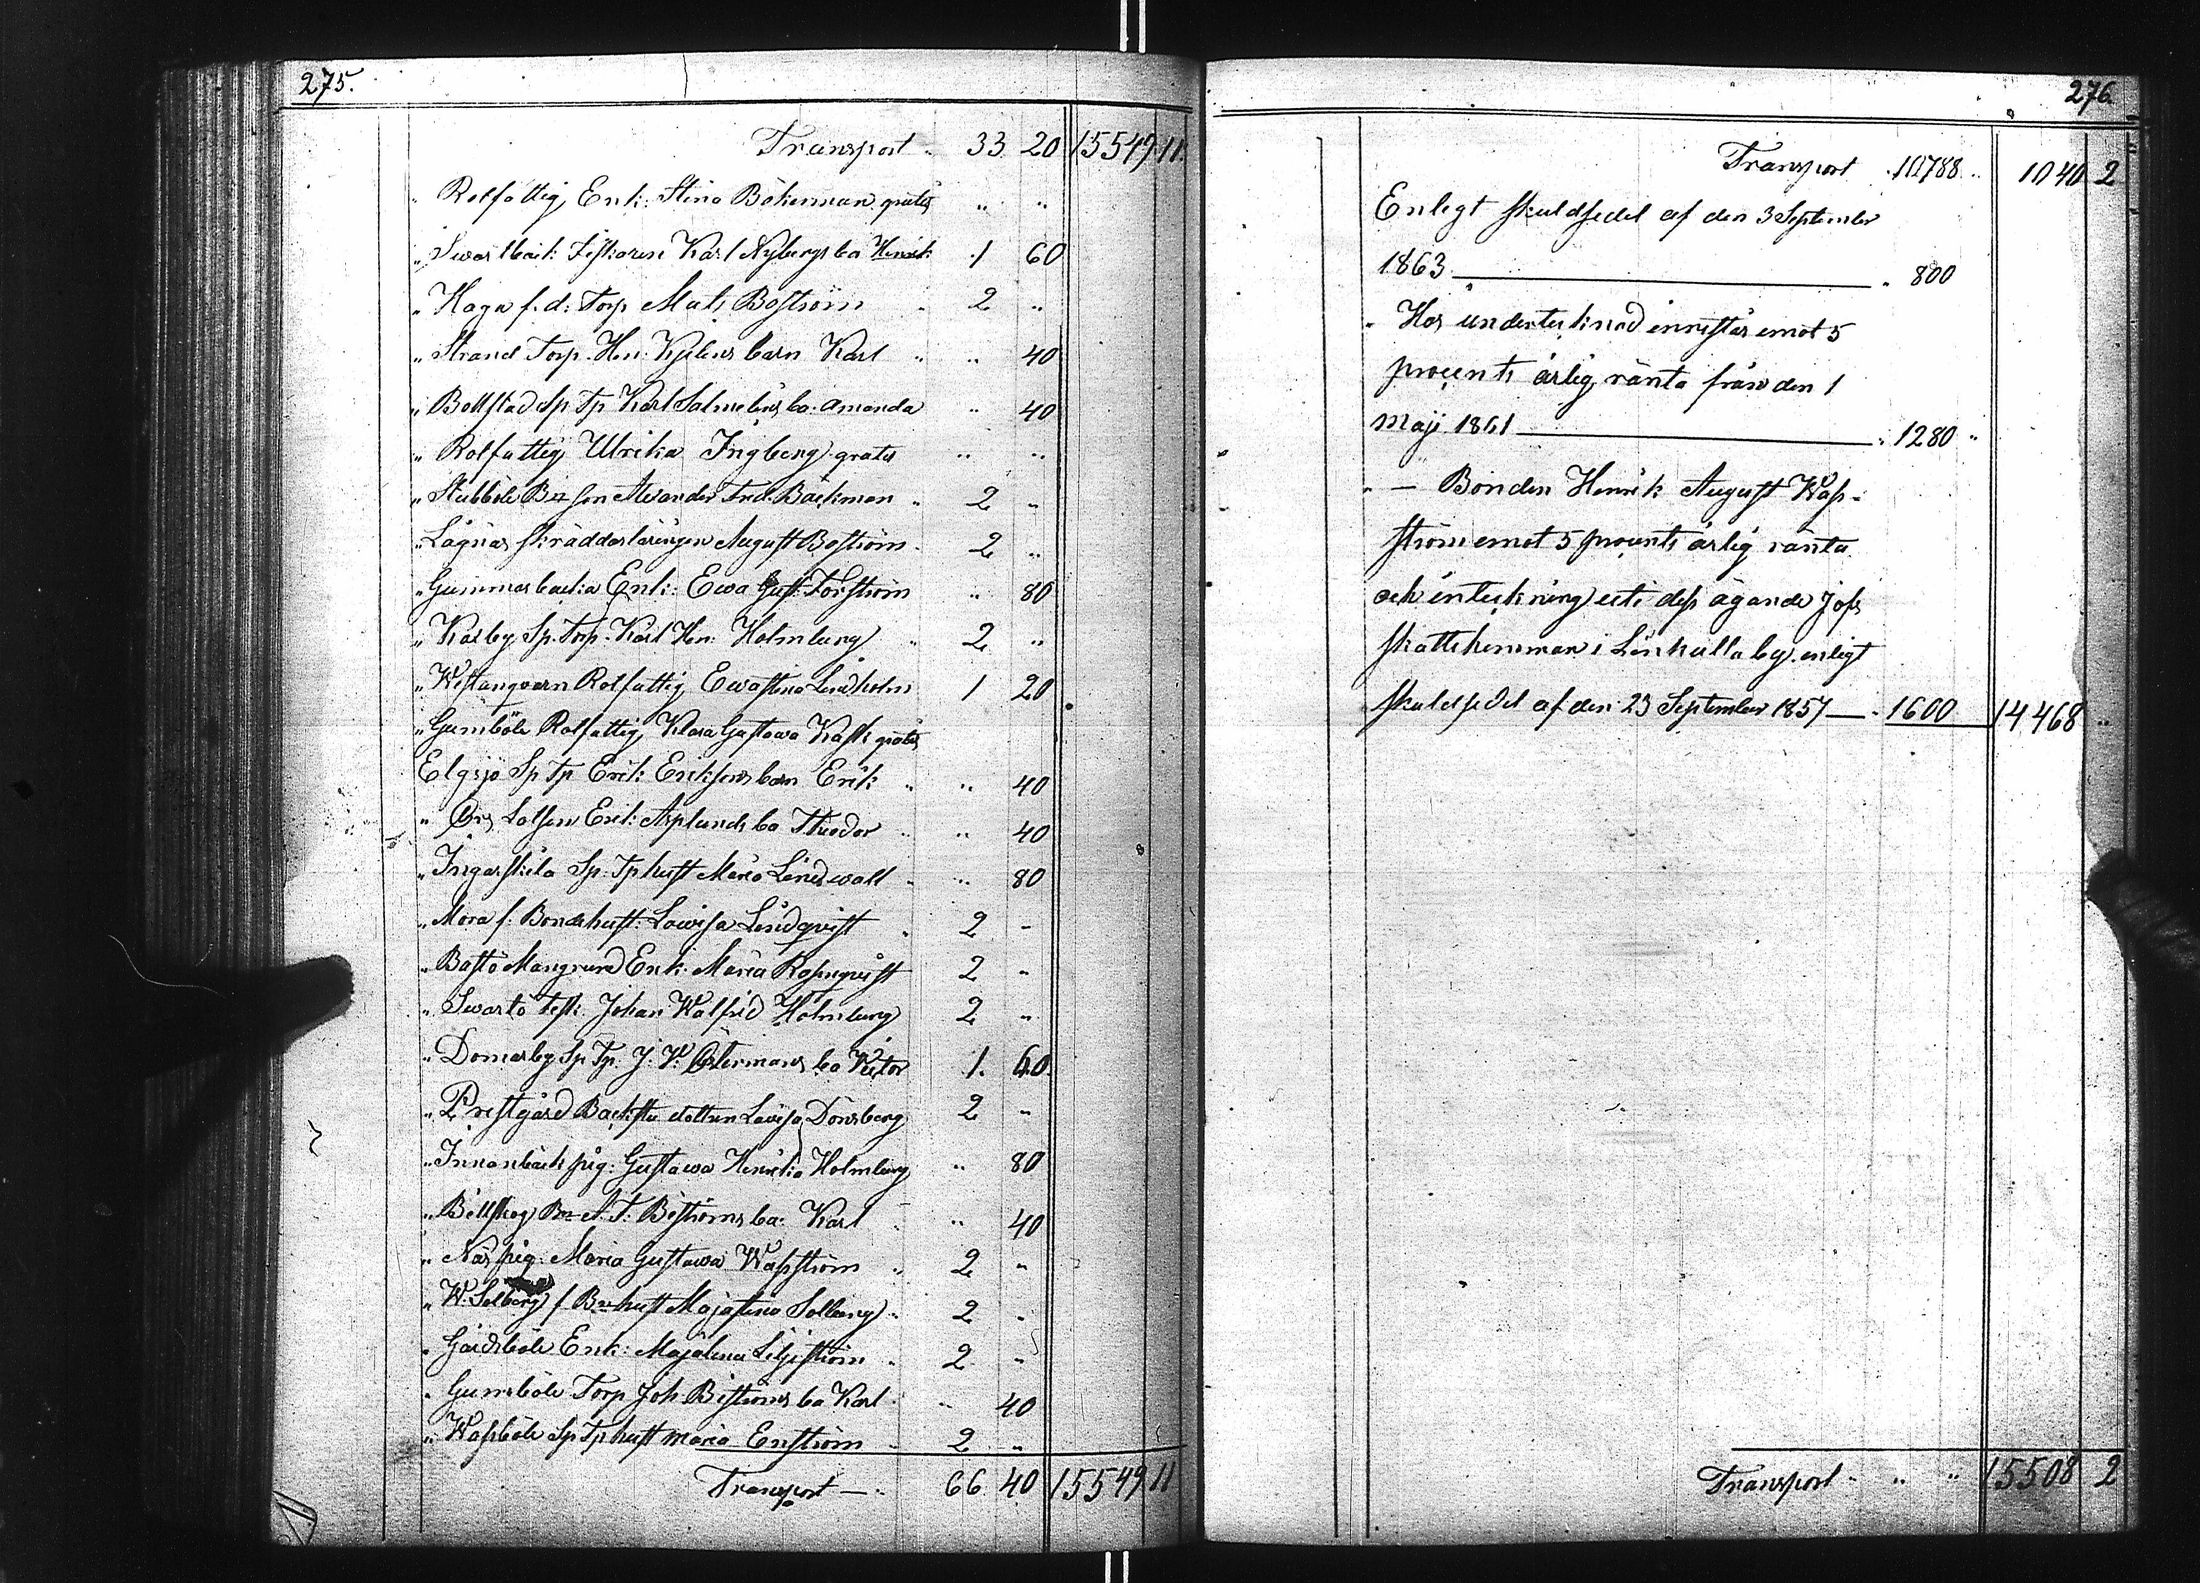 275.
Transport 33 20 15549 11.
" Rotfattig Enk: Stina Bökerman gratis " "
" Swartbäck Fiskaren Karl Nybergs ba Henrik 1 60
" Haga f. d: Torp Mats Boström 2 "
" Strand Torp. Hen: Kjelens barn Karl " 40
" Bollstad Sp Tp Karl Salmelins ba: Amanda " 40
" Rotfattig Ulrika Ingberg gratis " "
" Stubböle Bn son Alexander Fred: Bäckman 2 "
" Lågnäs skräddarlärlingen August Boström 2 "
" Gummarbacka Enk: Ewa Gust: Forström " 80
" Karby Sp. Torp. Karl Hen: Holmberg 2 "
" Westanqvarn Rotfattig Ewastina Lindholm 1 20
" Gumböle Rotfattig Klara Gustawa Kask gratis
Elgsjö Sp Tp Erik Eriksons barn Erik " 40
" Örs Lotsen Erik Asplunds ba Theodor " 40
" Ingarskila Sp. Tp hust Maria Lindwall " 80
" Mora f. Bondehust: Lowisa Lindqvist 2 -
" Bastö Mangrund Enk: Maria Rosnqvist 2 -
" Swartö Fisk: Johan Walfrid Holmberg 2 "
" Domarby Sp Tp. J. W. Östermans ba Victor 1. 60
" Prestgård Backstu dottren Lovisa Dönsberg 2 "
" Innanbäck pig: Gustawa Henrika Holmberg " 80
" Böllskog Bn A. F: Boströms ba: Karl " 40
" Näs pig: Maria Gustawa Wasström 2 "
" W. Solberg f Bn hust Majastina Solberg 2 "
" Gårdsböle Enk: Majalena Liljeström 2 "
" Gumböle Torp Joh Biströms ba Karl " 40
" Wasböle Sp Tp hust Maria Enström 2 "
Transport 66 40 15549 11
276
Transport 10788 " 1040 2
Enligt skuldsedel af den 3 September
1863 " 800
" Hos undertecknad innestår emot 5
procents årlig ränta från den 1
Maji 1861 " 1280 "
" — Bonden Henrik August Was-
ström emot 5 procents årlig ränta
och inteckning uti dess ägande Jofs
skattehemman i Lönkulla by enligt
skuldsedel af den 23 September 1857 — " 1600 14468 "
Transport " " 15508 2